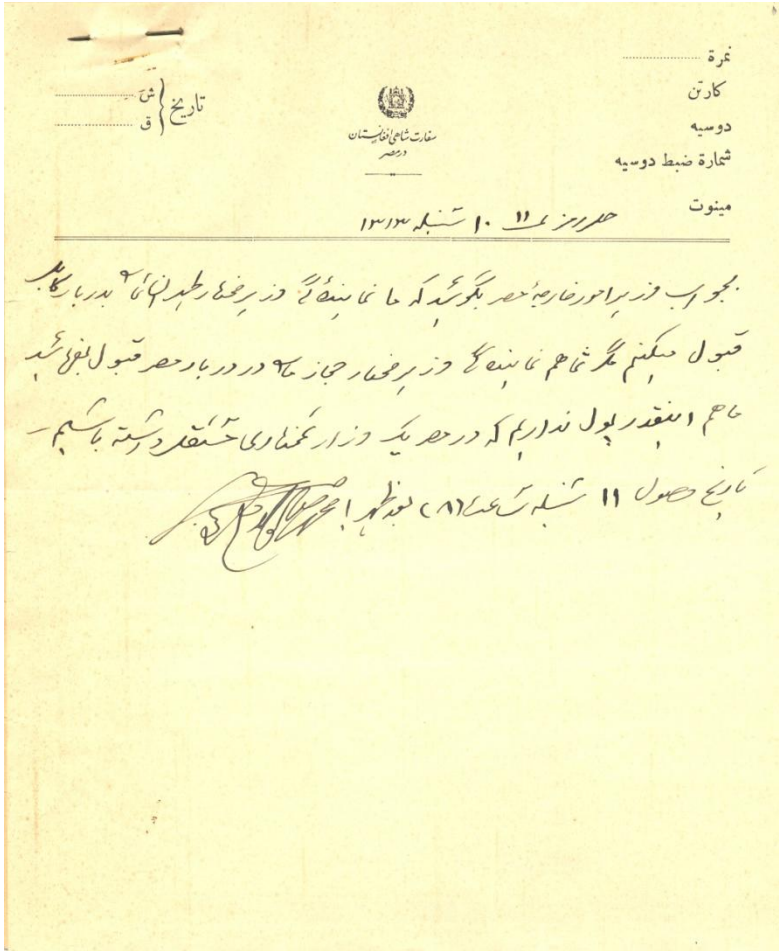 نمرة
کارتن
دوسیه
شمارة ضبط دوسیه
مینوت
تاریخ
ش
ق
سفارت شاهی افغانستان
در مصر
۱۱ ۱۰ سنبله ۱۳۱۳
بجواب وزیر امور خارجهٔ مصر بگوئید که ما نمایندگی وزیر مختار طهران شانرا بدربار کابل
قبول میکنیم مگر شما هم نمایندگی وزیر مختار حجاز ما را در دربار مصر قبول بفرمائید
ما هم اینقدر پول نداریم که در مصر یک وزارتمختاری مستقل داشته باشیم –
تاریخ حصول ۱۱ سنبله ساعت (۸) بعد ظهر